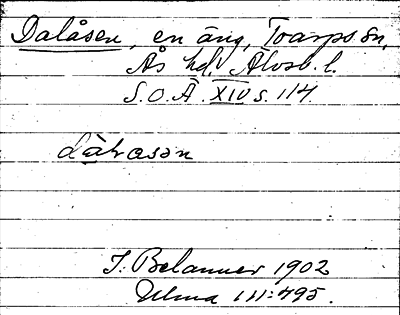 Dalåsen, en äng, Toarps sn,
Ås hd, Älvsb. l.
S.O.Ä. XIV s. 114.
J. Belanner 1902
Ulma 111:495.